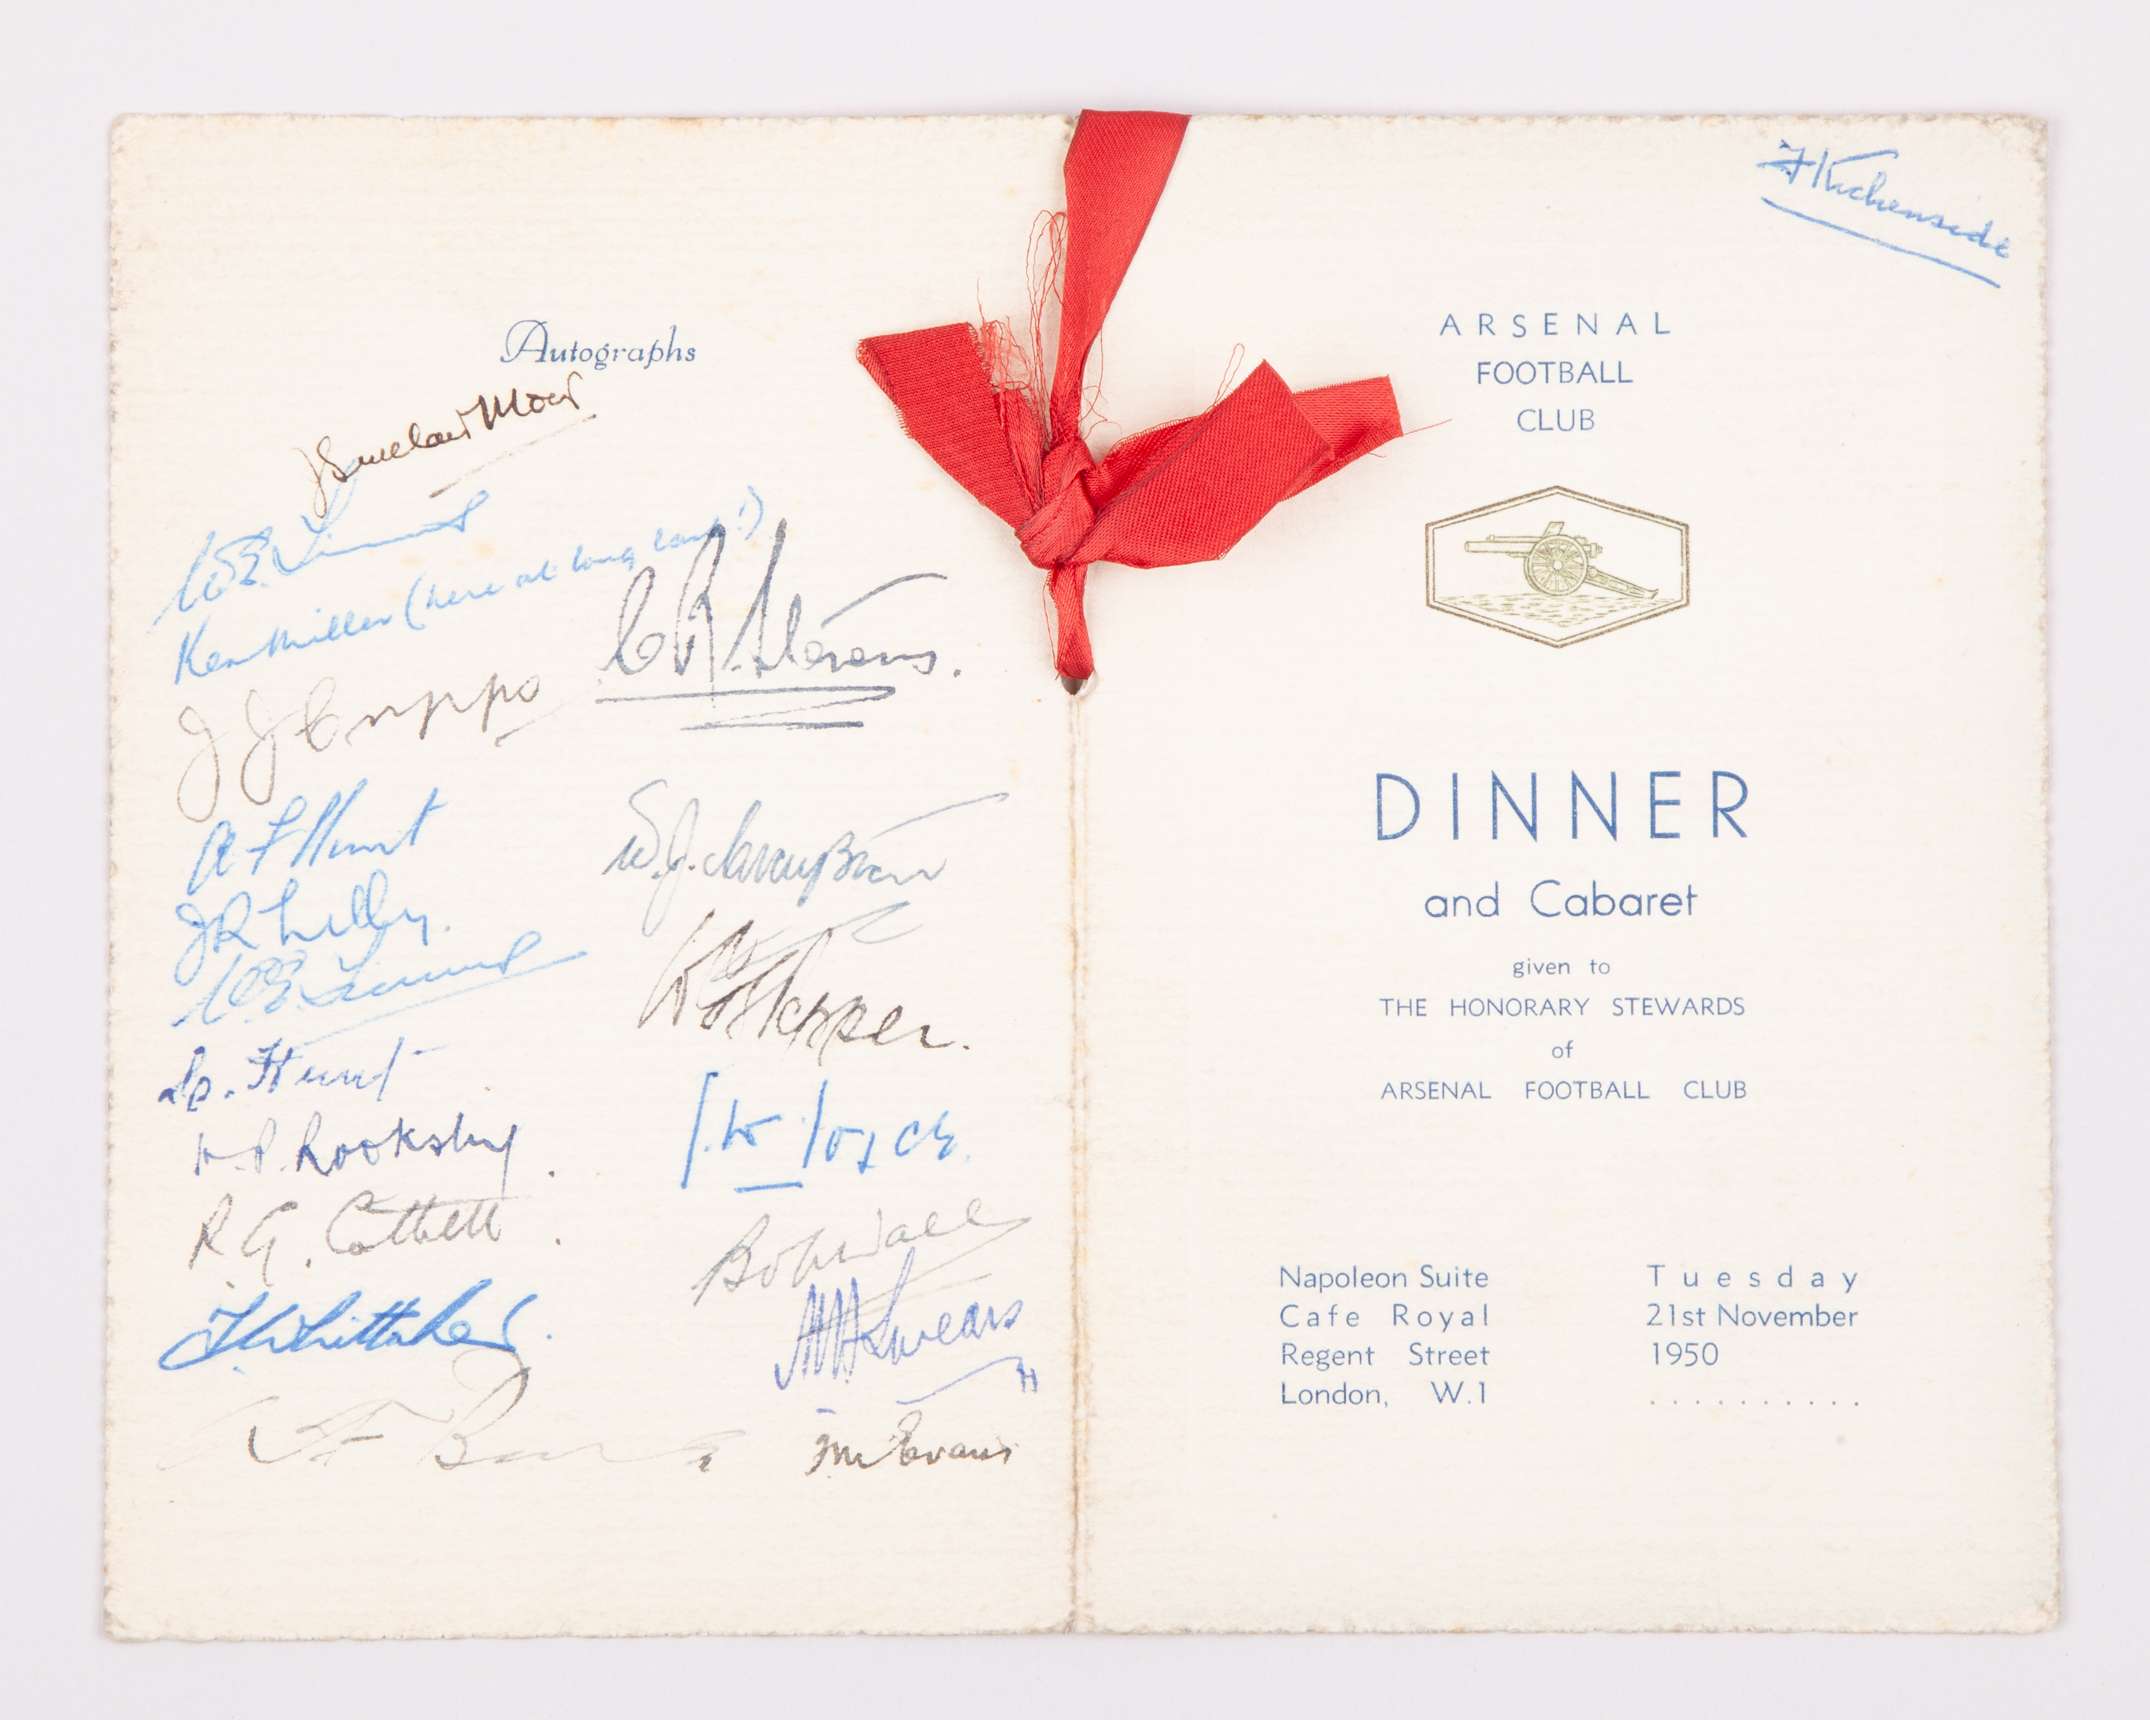 Autographs
J Sinclair Moir
W.E.
Ken Miller (here at long last!)
C R Stevens.
J J
A F Hunt
W.J.
J R Lilley.
W.E.
Hunt
Rooksby.
R. G.
J.W. Joyce.
Bob Wall
Whittaker.
Swears
Evans
F Kitchenside
ARSENAL
FOOTBALL
CLUB
DINNER
and Cabaret
given to
THE HONORARY STEWARDS
of
ARSENAL FOOTBALL CLUB
Napoleon Suite
Cafe Royal
Regent Street
London, W.1
Tuesday
21st November
1950
..........